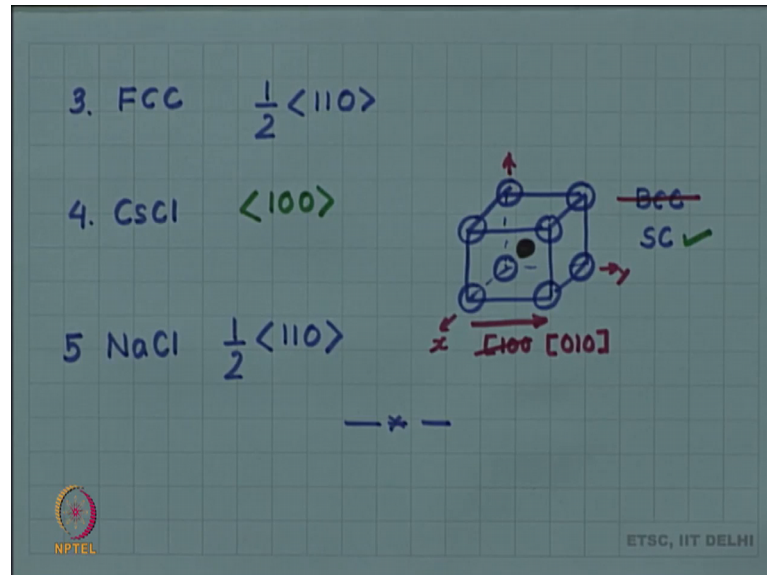 3. FCC 1/2 <110>
4. CsCl <100>
BCC
SC ✓
y
x [100 [010]
5 NaCl 1/2 <110>
—*—
NPTEL
ETSC, IIT DELHI